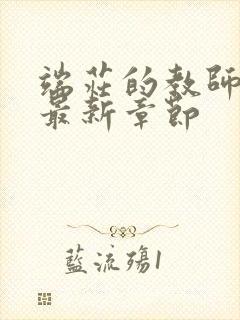 端莊的教師
最新章節
藍流殤1